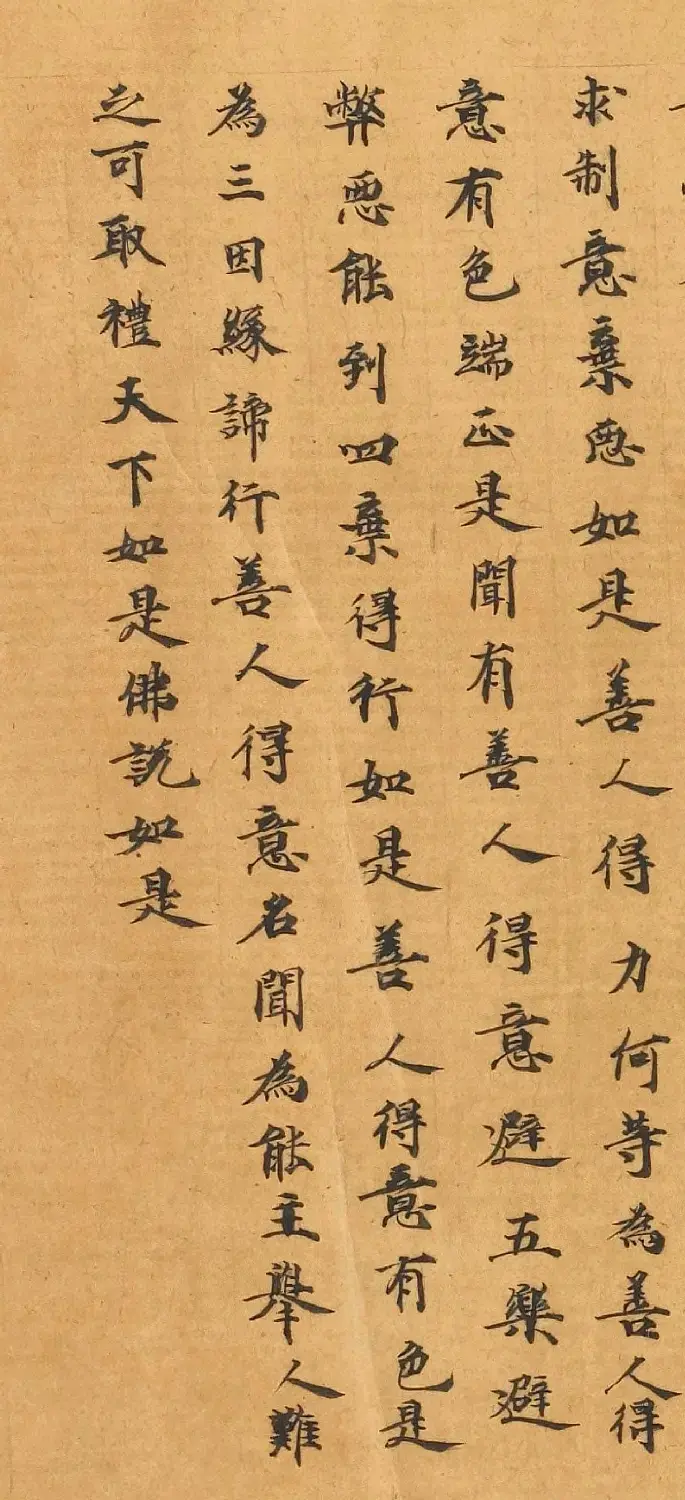 求制意棄惡如是善人得力何等為善人得
意有色端正是聞有善人得意避五樂避
弊惡能到四棄得行如是善人得意有色是
為三因緣諦行善人得意名聞為能主舉人難
之可取禮天下如是佛說如是